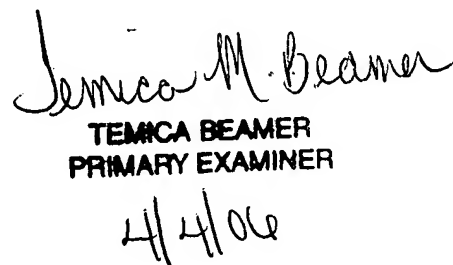 Temica M. Beamer
TEMICA BEAMER
PRIMARY EXAMINER
4/4/06